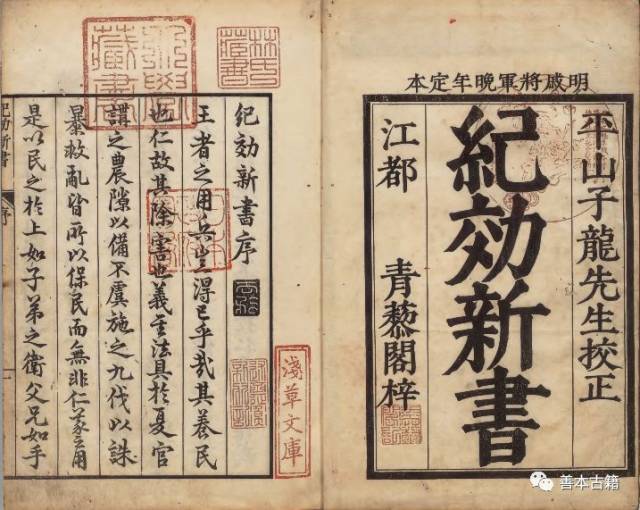 明戚將軍晚年定本
平山子龍先生挍正
紀効新書
江都 青藜閣梓
林氏藏書
淺草文庫
紀効新書序
王者之用兵豈得已乎哉其養民
也仁故其除害也義至法具於夏官
謂之農隙以備不虞施之九伐以誅
暴救亂皆所以保民而無非仁義之用
是以民之於上如子弟之衛父兄如手
紀効新書
序
一
善本古籍